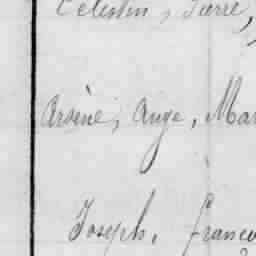 Célestin, Pierre,
Arsène, Ange, Mar
Joseph, franco